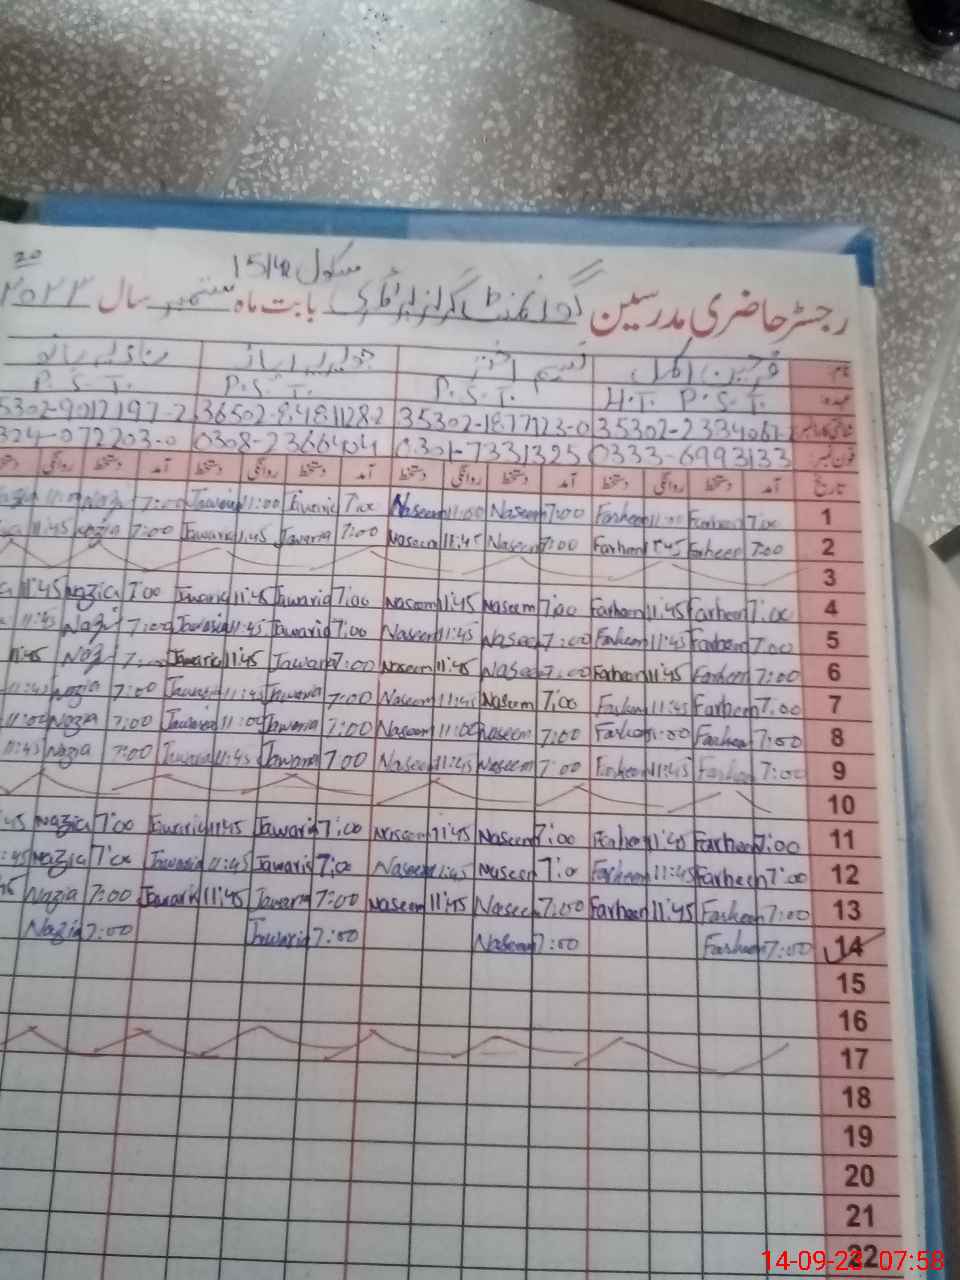 20
سکول 15/4R
رجسٹر حاضری مدرسین گورنمنٹ گرلز بابت ماہ ستمبر سال ۲۰۲۳
نام فرحین اکمل نسیم اختر جویریہ نازیہ
عہدہ H.T. P.S.T. P.S.T. P.S.T. P.S.T.
35302-1877723-0
فون نمبر 0333-6993133 0301-7331325
تاریخ آمد دستخط روانگی دستخط آمد دستخط روانگی دستخط آمد دستخط روانگی دستخط آمد دستخط روانگی
1 7:00 Farheen Farheen 7:00 Naseem 11:00 Naseem 7:00 Jawaria 11:00 Jawaria 7:00 Nazia
2 7:00 Farheen Farheen 7:00 Naseem 11:45 Naseem 7:00 Jawaria 11:45 Jawaria 7:00 Nazia 11:45
3
4 7:00 Farheen 11:45 Farheen 7:00 Naseem 11:45 Naseem 7:00 Jawaria 11:45 Jawaria 7:00 Nazia 11:45
5 7:00 Farheen 11:45 Farheen 7:00 Naseem 11:45 Naseem 7:00 Jawaria 11:45 Jawaria 7:00 Nazia 11:45
6 7:00 Farheen 11:45 Farheen 7:00 Naseem 11:45 Naseem 7:00 Jawaria 11:45 Jawaria Nazia 11:45
7 7:00 Farheen 11:45 Farheen 7:00 Naseem 11:45 Naseem 7:00 Jawaria 11:45 Jawaria 7:00 Nazia 11:45
8 7:00 Farheen 11:00 Farheen 7:00 Naseem 11:00 Naseem 7:00 Jawaria 11:00 Jawaria 7:00 Nazia 11:00
9 7:00 Farheen 11:45 Farheen 7:00 Naseem 11:45 Naseem 7:00 Jawaria 11:45 Jawaria 7:00 Nazia 11:45
10
11 7:00 Farheen 11:45 Farheen 7:00 Naseem 11:45 Naseem 7:00 Jawaria 11:45 Jawaria 7:00 Nazia
12 7:00 Farheen 11:45 Farheen 7:00 Naseem 11:45 Naseem 7:00 Jawaria 11:45 Jawaria 7:00 Nazia
13 7:00 Farheen 11:45 Farheen 7:00 Naseem 11:45 Naseem 7:00 Jawaria 11:45 Jawaria 7:00 Nazia
14 7:00 Farheen 7:00 Naseem 7:00 Jawaria 7:00 Nazia
15
16
17
18
19
20
21
22
14-09-23 07:58